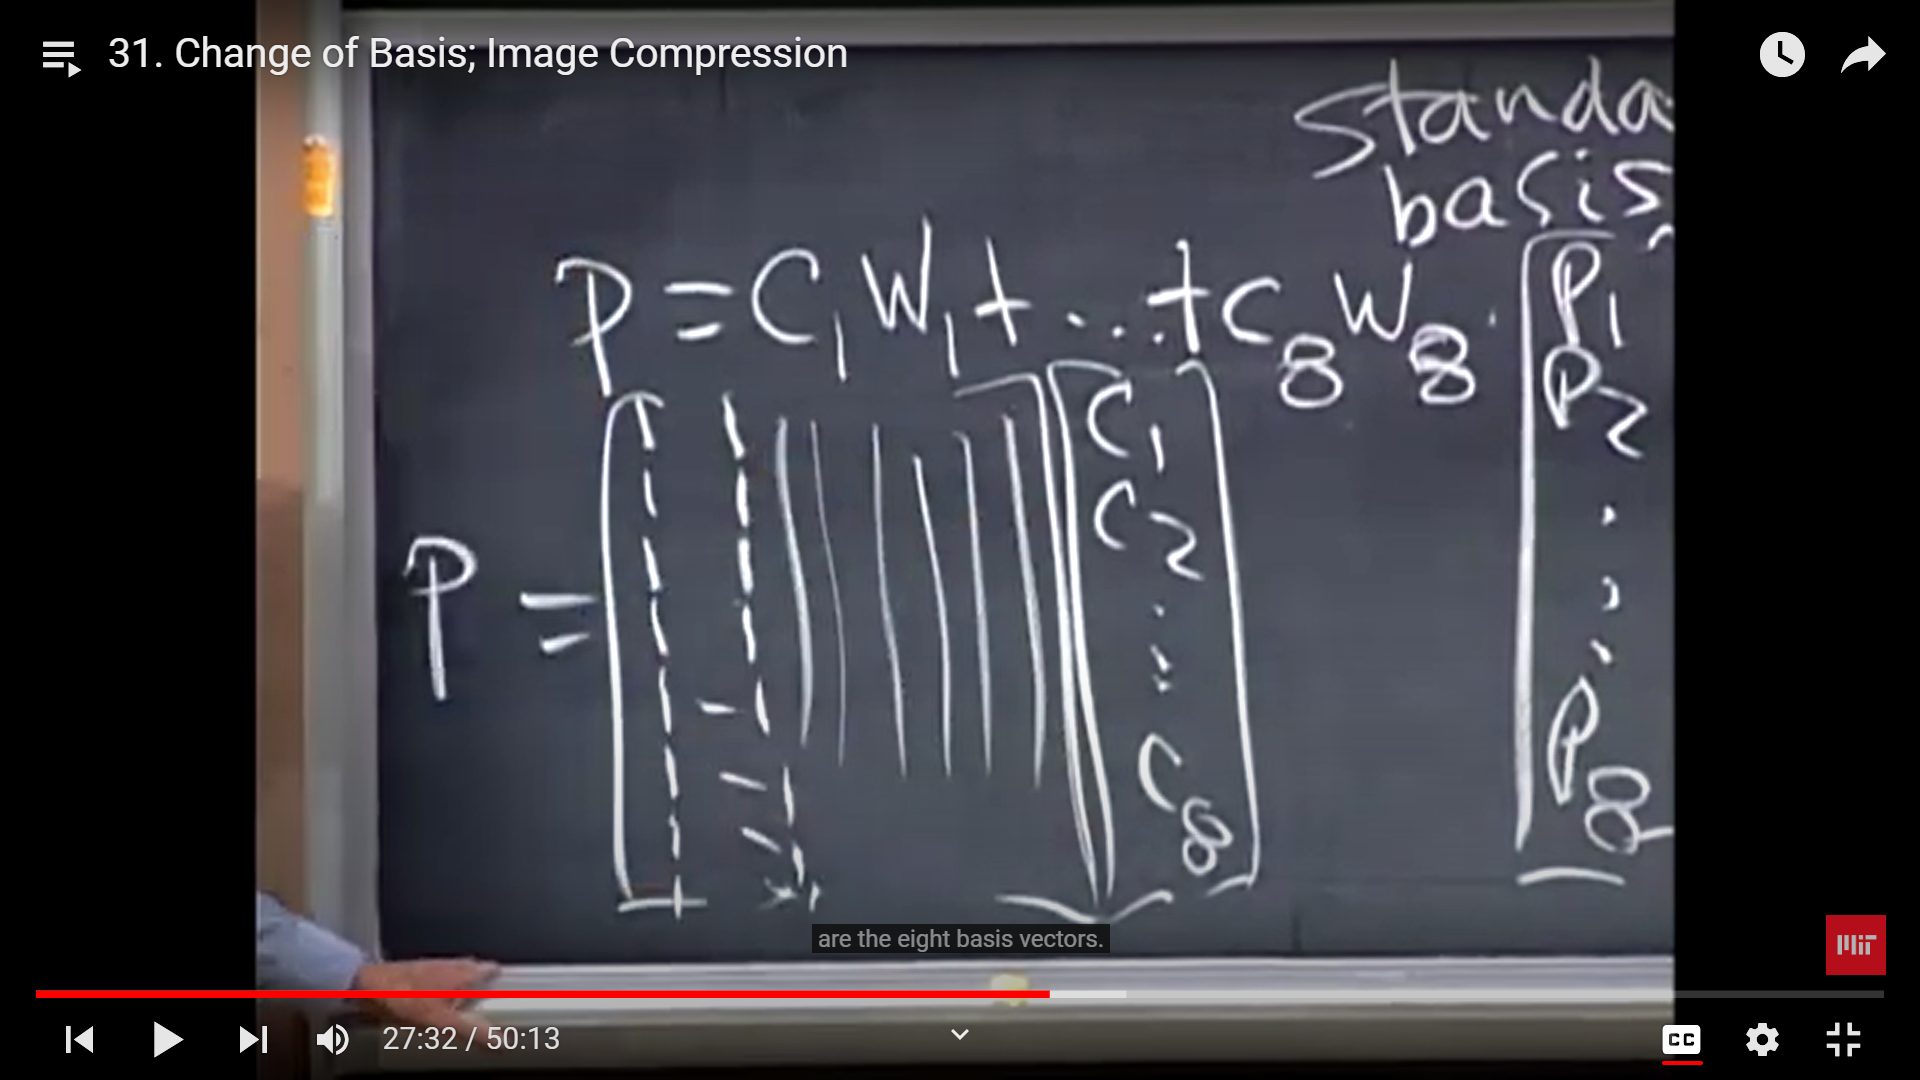 31. Change of Basis; Image Compression
standa
basis
P = C1 W1 + ... + C8 W8.
P =
C1
C2
⋮
C8
P1
P2
⋮
P8
are the eight basis vectors.
MIT
27:32 / 50:13
CC